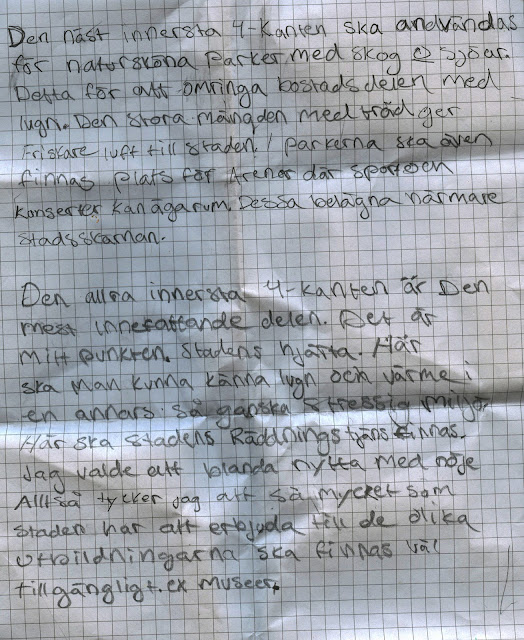 Den näst innersta 4-kanten ska andvändas
för natursköna parker med skog & sjöar.
Detta för att omringa bostadsdelen med
lugn. Den stora mängden med träd ger
Friskare luft till staden. I parkerna ska även
finnas plats för Arenor där sport och
Konserter kan äga rum. Dessa belägna närmare
stadsskärnan.
Den allra innersta 4-kanten är Den
mest innefattande delen. Det är
mittpunkten. Stadens hjärta. Här
ska man kunna känna lugn och värme i
en annars så ganska stressig miljö.
Här ska stadens Räddningstjäns finnas.
Jag valde att blanda nytta med nöje
Alltså tycker jag att så mycket som
staden har att erbjuda till de olika
utbildningarna ska finnas väl
tillgängligt. ex museer.